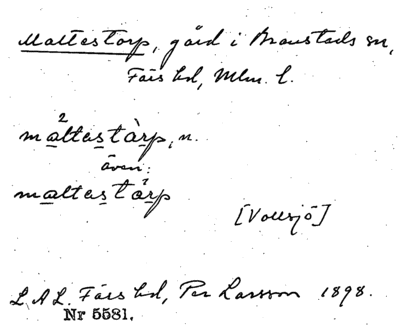 Mattestorp, gård i Brandstads sn,
Färs hd, Mlm. l.
2
mattestàrp, n.
även:
mattestá̀rp
[Vollsjö]
L A L. Färs hd, Per Larsson 1898.
Nr 5581.